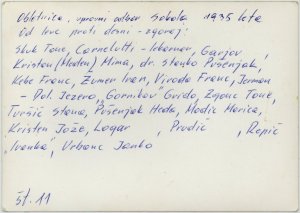 Obletnica, upravni odbor Sokola 1935 leta
Od leve proti desni - zgoraj:
Tone, Cornelutti - lekarnar, Garjov
Kristan (Moden) Mima, dr. Stanko Pršenjak,
Kebe Franc, Žumer Ivan, Viroda Franc, Jerman
- Dol. Jezero, Gornikov Gvido, Zgonc Tone,
Turšič Stana, Pršenjak Heda, Modic Marica,
Kristan Jože, Logar , Prudič , Repič
"Ivanka", Urbanc Janko
št. 11